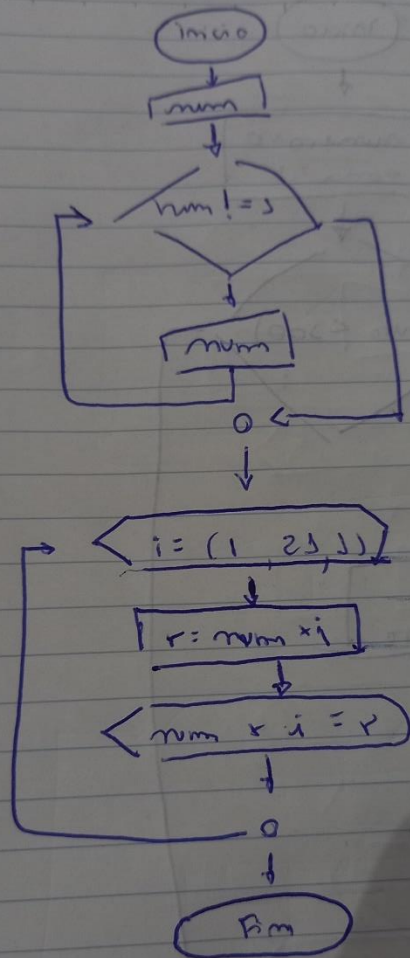 inicio
num
num != 1
num
i = (1, 21, 1)
r = num * i
num * i = r
Fim